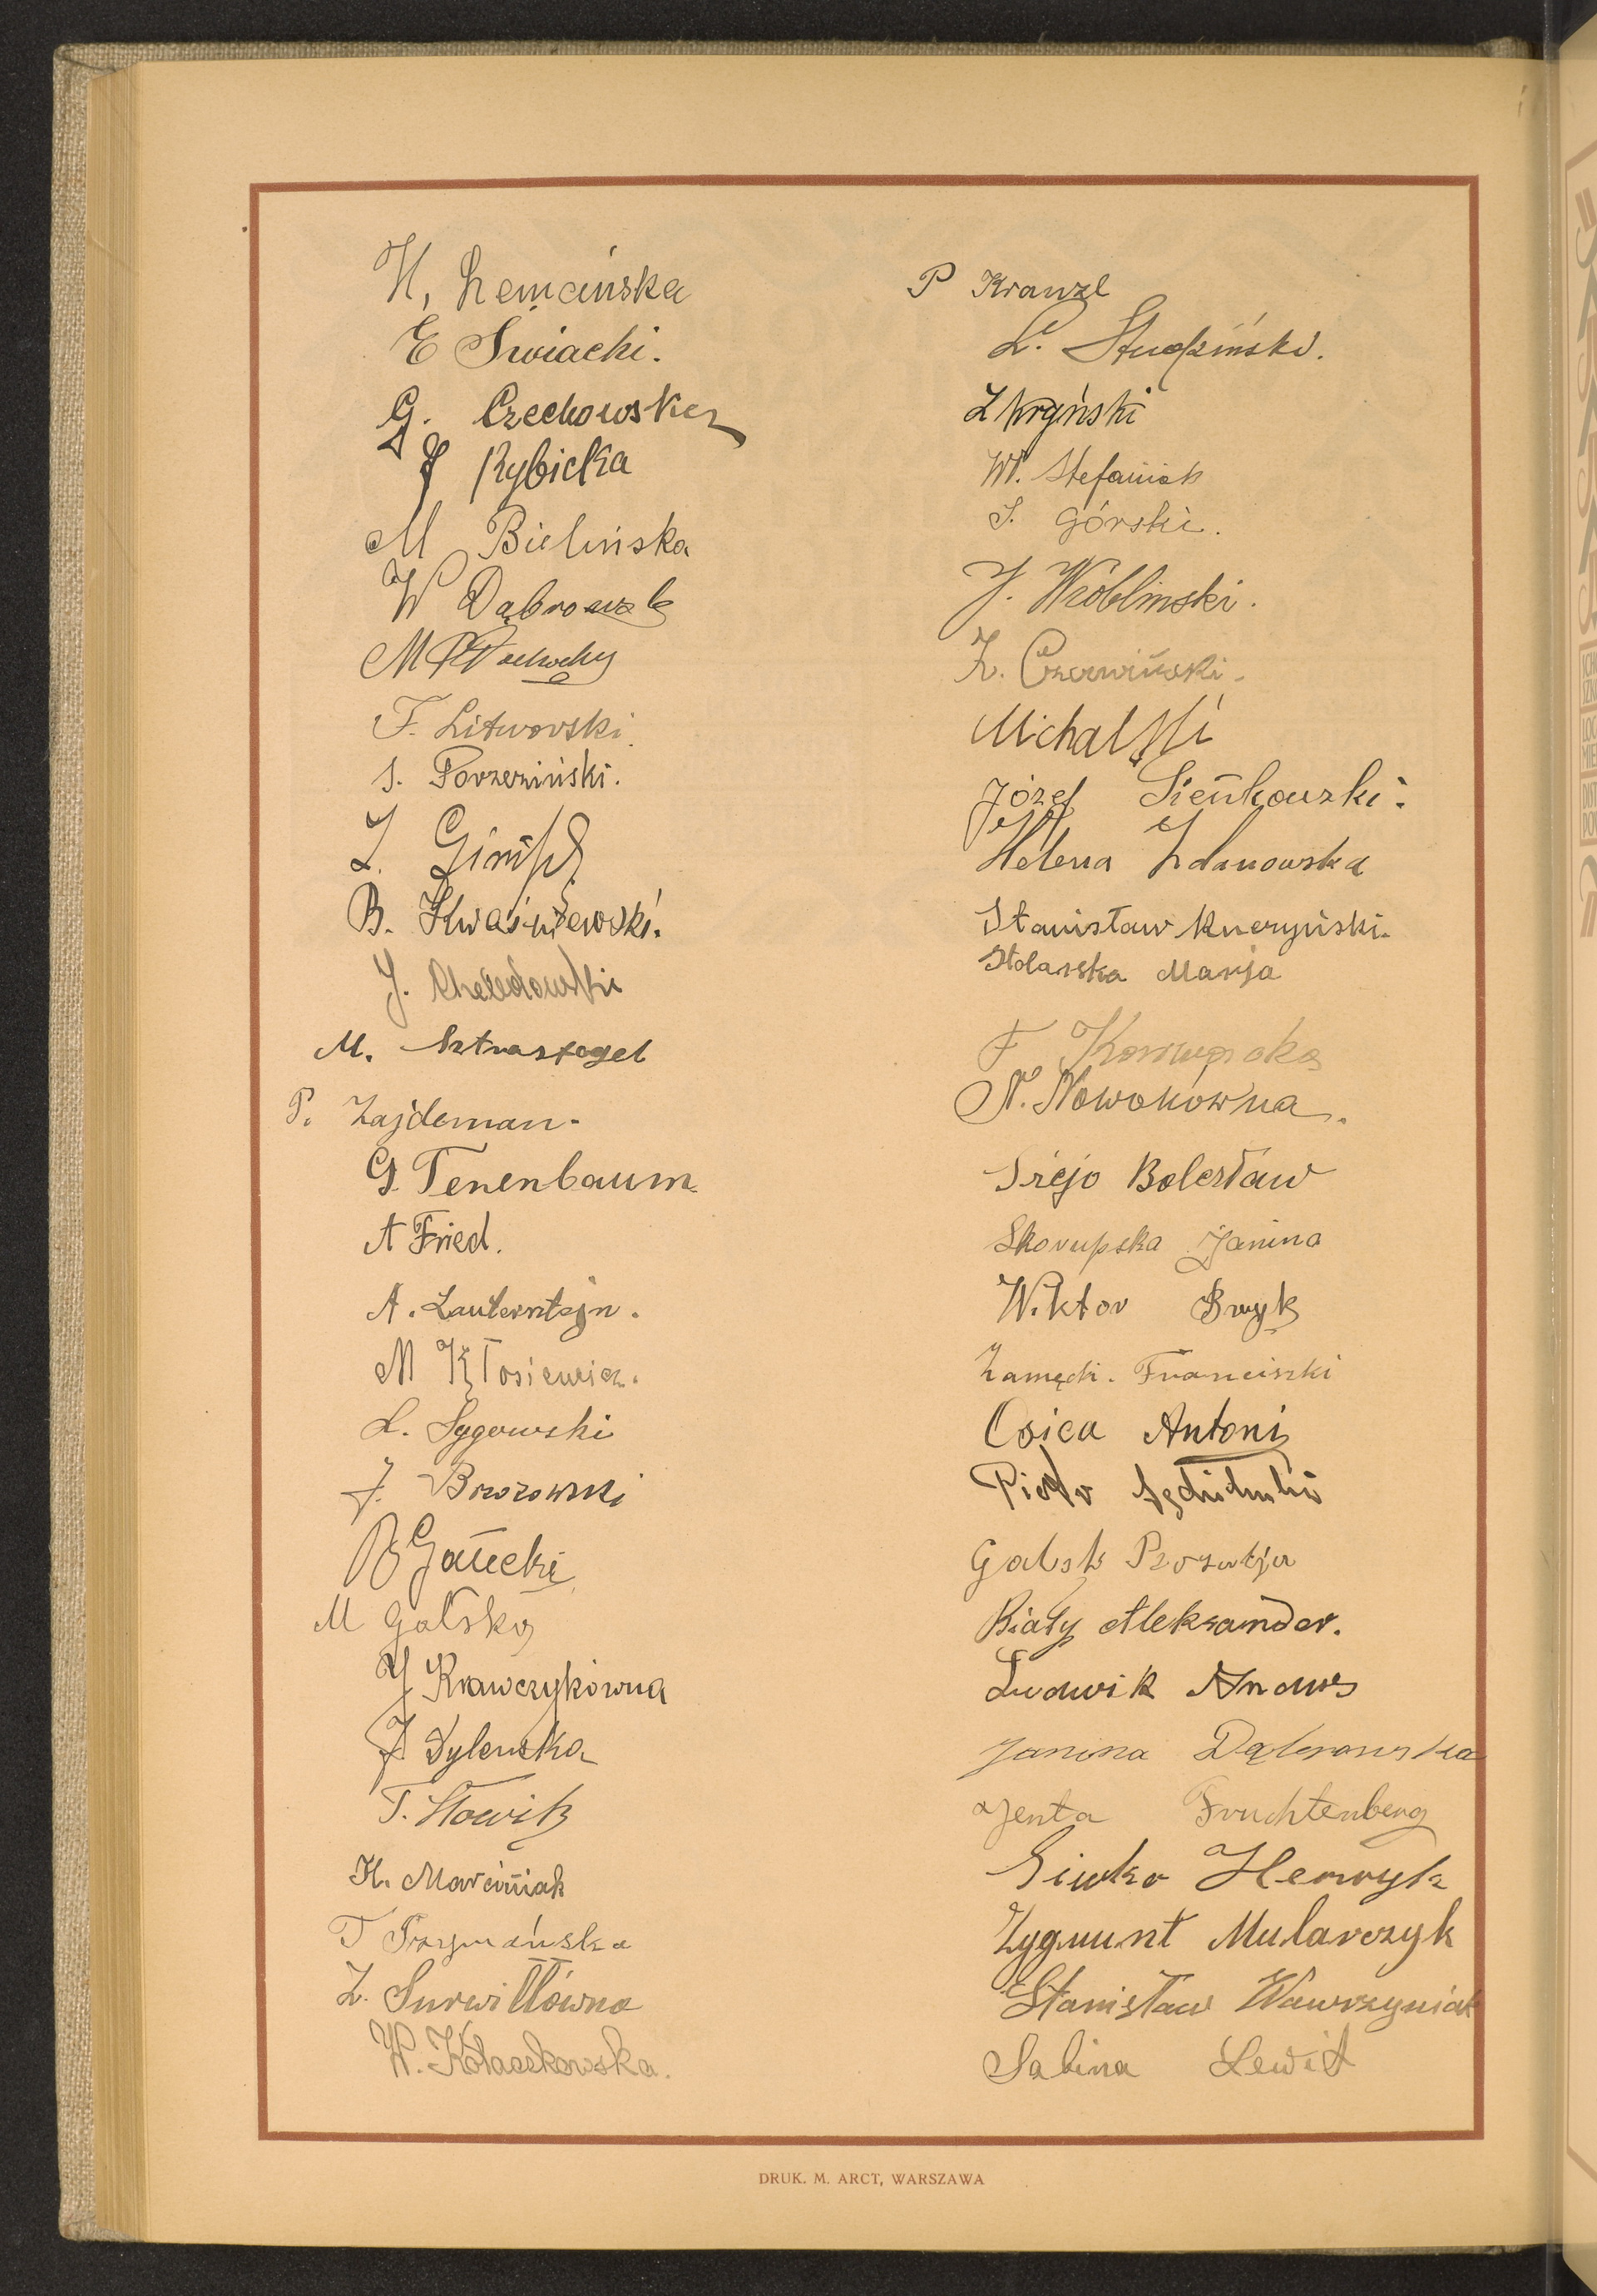 H. Lemańska
E Świacki.
G. Czechowska
J Rybicka
M Bielińska
W Dąbrowsk
M
F. Litworski.
S. Porzeziński.
Z.
B. Kwaśniewski.
J. Chełchowski
M. Sztrasfogel
P. Zajdeman.
G. Tenenbaum
A Fried.
A. Lautersztajn.
M Kłosiewicz.
L. Sygowski
J. Brzozowski
B Gałecki
M Galska
J Krawczykówna
J Dylewska
T. Słowik
H. Marciniak
T Szymańska
Z. Surwiłłówna
W. Kołaczkowska.
P Krawzl
L. Studziński.
Z Wryński
Wł. Stefaniak
S. Górski.
J. Wróblinski.
Z. Czerwiński.
Michalski
Józef Sieńkowski.
Helena Zdanowska
Stanisław Kuczyński.
Stolarska Marja
F
N. Nowakówna.
Srejo Bolesław
Skorupska Janina
Wiktor Bryk
Zamęcki. Franciszki
Osica Antoni
Piotr
Galsk
Biały Aleksander.
Ludwik
Janina Dąbrowska
Jenta Fruchtenberg
Siwko Henryk
Zygmunt Mularczyk
Stanisław Wawrzyniak
Sabina Lewit
DRUK. M. ARCT, WARSZAWA